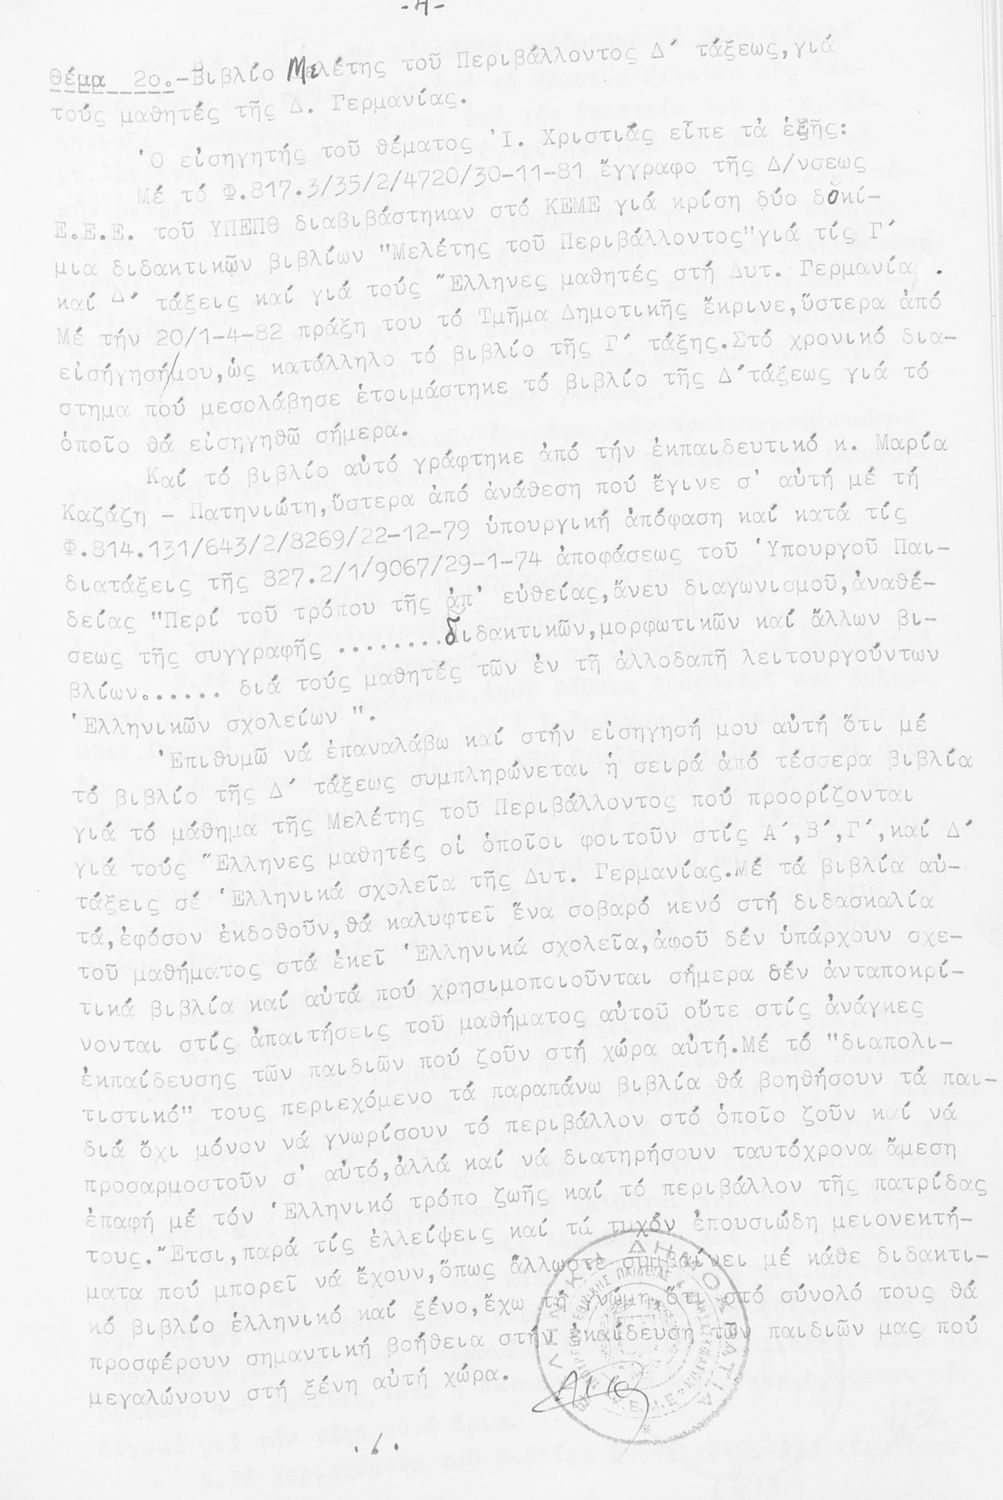 -4-
θέμα 2ο.-Βιβλίο Μελέτης τοῦ Περιβάλλοντος Δ΄ τάξεως,γιά
τούς μαθητές τῆς Δ. Γερμανίας.
Ὁ εἰσηγητής τοῦ θέματος Ἰ. Χριστιάς εἶπε τά ἑξῆς:
Μέ τό Φ.817.3/35/2/4720/30-11-81 ἔγγραφο τῆς Δ/νσεως
Ε.Ε.Ε. τοῦ ΥΠΕΠΘ διαβιβάστηκαν στό ΚΕΜΕ γιά κρίση δύο δοκί-
μια διδακτικῶν βιβλίων "Μελέτης τοῦ Περιβάλλοντος"γιά τίς Γ΄
καί Δ΄ τάξεις καί γιά τούς Ἕλληνες μαθητές στή Δυτ. Γερμανία .
Μέ τήν 20/1-4-82 πράξη του τό Τμῆμα Δημοτικῆς ἔκρινε,ὕστερα ἀπό
εἰσήγησή/μου,ὡς κατάλληλο τό βιβλίο τῆς Γ΄ τάξης.Στό χρονικό δια-
στημα πού μεσολάβησε ἑτοιμάστηκε τό βιβλίο τῆς Δ΄τάξεως γιά τό
ὁποῖο θά εἰσηγηθῶ σήμερα.
Καί τό βιβλίο αὐτό γράφτηκε ἀπό τήν ἐκπαιδευτικό κ. Μαρία
Καζάζη - Πατηνιώτη,ὕστερα ἀπό ἀνάθεση πού ἔγινε σ' αὐτή μέ τή
Φ.814.131/643/2/8269/22-12-79 ὑπουργική ἀπόφαση καί κατά τίς
διατάξεις τῆς 827.2/1/9067/29-1-74 ἀποφάσεως τοῦ Ὑπουργοῦ Παι-
δείας "Περί τοῦ τρόπου τῆς ἀπ' εὐθείας,ἄνευ διαγωνισμοῦ,ἀναθέ-
σεως τῆς συγγραφῆς ........διδακτικῶν,μορφωτικῶν καί ἄλλων βι-
βλίων...... διά τούς μαθητές τῶν ἐν τῇ ἀλλοδαπῇ λειτουργούντων
Ἑλληνικῶν σχολείων ".
Ἐπιθυμῶ νά ἐπαναλάβω καί στήν εἰσήγησή μου αὐτή ὅτι μέ
τό βιβλίο τῆς Δ΄ τάξεως συμπληρώνεται ἡ σειρά ἀπό τέσσερα βιβλία
γιά τό μάθημα τῆς Μελέτης τοῦ Περιβάλλοντος πού προορίζονται
γιά τούς Ἕλληνες μαθητές οἱ ὁποῖοι φοιτοῦν στίς Α΄,Β΄,Γ΄,καί Δ΄
τάξεις σέ Ἑλληνικά σχολεῖα τῆς Δυτ. Γερμανίας.Μέ τά βιβλία αὐ-
τά,ἐφόσον ἐκδοθοῦν,θά καλυφτεῖ ἕνα σοβαρό κενό στή διδασκαλία
τοῦ μαθήματος στά ἐκεῖ Ἑλληνικά σχολεῖα,ἀφοῦ δέν ὑπάρχουν σχε-
τικά βιβλία καί αὐτά πού χρησιμοποιοῦνται σήμερα δέν ἀνταποκρί-
νονται στίς ἀπαιτήσεις τοῦ μαθήματος αὐτοῦ οὔτε στίς ἀνάγκες
ἐκπαίδευσης τῶν παιδιῶν πού ζοῦν στή χώρα αὐτή.Μέ τό "διαπολι-
τιστικό" τους περιεχόμενο τά παραπάνω βιβλία θά βοηθήσουν τά παι-
διά ὄχι μόνον νά γνωρίσουν τό περιβάλλον στό ὁποῖο ζοῦν καί νά
προσαρμοστοῦν σ' αὐτό,ἀλλά καί νά διατηρήσουν ταυτόχρονα ἄμεση
ἐπαφή μέ τόν Ἑλληνικό τρόπο ζωῆς καί τό περιβάλλον τῆς πατρίδας
τους.Ἔτσι,παρά τίς ἐλλείψεις καί τά τυχόν ἐπουσιώδη μειονεκτή-
ματα πού μπορεῖ νά ἔχουν,ὅπως ἄλλωστε συμβαίνει μέ κάθε διδακτι-
κό βιβλίο ἑλληνικό καί ξένο,ἔχω τή γνώμη,ὅτι στό σύνολό τους θά
προσφέρουν σημαντική βοήθεια στήν ἐκπαίδευση τῶν παιδιῶν μας πού
μεγαλώνουν στή ξένη αὐτή χώρα.
./.